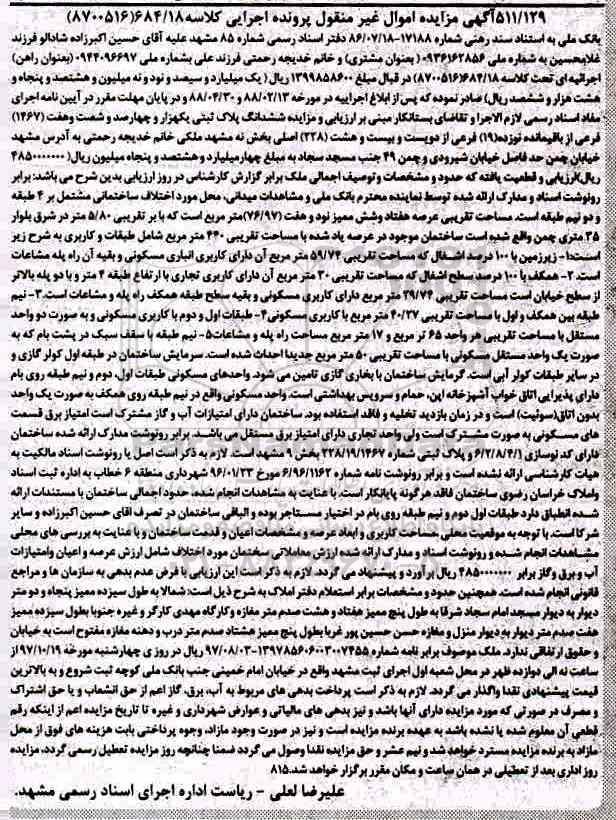 ۵۱۱/۱۲۹آگهی مزایده اموال غیر منقول پرونده اجرایی کلاسه۶۸۴/۱۸(۸۷۰۰۵۱۶)
بانک ملی به استناد سند رهنی شماره ۱۷۱۸۸-۸۶/۰۷/۱۸ دفتر اسناد رسمی شماره ۸۵ مشهد علیه آقای حسین اکبرزاده شادالو فرزند
غلامحسین به شماره ملی ۰۹۳۶۱۶۲۸۵۶ ( بعنوان مشتری) و خانم خدیجه رحمتی فرزند علی بشماره ملی ۰۹۴۴۰۹۶۶۹۷ (بعنوان راهن)
اجرائیه ای تحت کلاسه ۶۸۴/۱۸(۸۷۰۰۵۱۶) در قبال مبلغ ۱۳۹۹۸۵۸۶۰۰ ریال ( یک میلیارد و سیصد و نود و نه میلیون و هشتصد و پنجاه و
هشت هزار و ششصد ریال) صادر نموده که پس از ابلاغ اجراییه در مورخه ۸۸/۰۲/۱۳ و ۸۸/۰۴/۳۰ و در پایان مهلت مقرر در آیین نامه اجرای
مفاد اسناد رسمی لازم الاجرا و تقاضای بستانکار مبنی بر ارزیابی و مزایده ششدانگ پلاک ثبتی یکهزار و چهارصد و شصت وهفت (۱۴۶۷)
فرعی از باقیمانده نوزده(۱۹) فرعی از دویست و بیست و هشت (۲۲۸) اصلی بخش نه مشهد ملکی خانم خدیجه رحمتی به آدرس مشهد
خیابان چمن حد فاصل خیابان شیرودی و چمن ۴۹ جنب مسجد سجاد به مبلغ چهارمیلیارد و هشتصد و پنجاه میلیون ریال( ۴۸۵۰۰۰۰۰۰۰
ریال)ارزیابی و قطعیت یافته که حدود و مشخصات وتوصیف اجمالی ملک برابر گزارش کارشناس در روز ارزیابی بدین شرح می باشد: برابر
رونوشت اسناد و مدارک ارائه شده توسط نماینده محترم بانک ملی و مشاهدات میدانی، محل مورد اختلاف ساختمانی مشتمل بر ۴ طبقه
و دو نیم طبقه است. مساحت تقریبی عرصه هفتاد وشش ممیز نود و هفت (۷۶/۹۷)متر مربع است که با بر تقریبی ۵/۸۰ متر در شرق بلوار
۳۵ متری چمن واقع شده است ساختمان موجود در عرصه یاد شده با مساحت تقریبی ۴۴۰ متر مربع شامل طبقات و کاربری به شرح زیر
است:۱- زیرزمین با ۱۰۰ درصد اشغال که مساحت تقریبی ۵۹/۷۴ متر مربع آن دارای کاربری انباری مسکونی و بقیه آن راه پله مشاعات
است.۲- همکف با ۱۰۰ درصد سطح اشغال که مساحت تقریبی ۳۰ متر مربع آن دارای کاربری تجاری با ارتفاع طبقه ۴ متر و با دو پله بالاتر
از سطح خیابان است مساحت تقریبی ۲۹/۷۴ متر مربع دارای کاربری مسکونی و بقیه سطح طبقه همکف راه پله و مشاعات است.۳- نیم
طبقه بین همکف و اول با مساحت تقریبی ۴۰/۲۷ متر مربع با کاربری مسکونی۴- طبقات اول و دوم با کاربری مسکونی و به صورت دو واحد
مستقل با مساحت تقریبی هر واحد ۶۵ تر مربع و ۱۷ متر مربع مساحت راه پله و مشاعات۵- نیم طبقه با سقف سبک در پشت بام که به
صورت یک واحد مستقل مسکونی با مساحت تقریبی ۵۰ متر مربع جدیدا احداث شده است. سرمایش ساختمان در طبقه اول کولر گازی و
در سایر طبقات کولر آبی است. گرمایش ساختمان با بخاری گازی تامین می شود. واحدهای مسکونی طبقات اول، دوم و نیم طبقه روی بام
دارای پذیرایی اتاق خواب آشپزخانه اپن، حمام و سرویس بهداشتی است. واحد مسکونی واقع در نیم طبقه روی همکف به صورت یک واحد
بدون اتاق(سوئیت) است و در زمان بازدید تخلیه و فاقد استفاده بود. ساختمان دارای امتیازات آب و گاز مشترک است امتیاز برق قسمت
های مسکونی به صورت مشترک است ولی واحد تجاری دارای امتیاز برق مستقل می باشد. برابر رونوشت مدارک ارائه شده ساختمان
دارای کد نوسازی ۶/۲/۸/۴/۱ و پلاک ثبتی شماره ۲۲۸/۱۹/۱۴۶۷ بخش ۹ مشهد است. لازم به ذکر است اصل یا رونوشت اسناد مالکیت به
هیات کارشناسی ارائه نشده است و برابر رونوشت نامه شماره ۶/۹۶/۱۱۶۲ مورخ ۹۶/۰۱/۲۳ شهرداری منطقه ۶ خطاب به اداره ثبت اسناد
واملاک خراسان رضوی ساختمان فاقد هرگونه پایانکار است. با عنایت به مشاهدات انجام شده، حدود اجمالی ساختمان با مستندات ارائه
شده انطباق دارد طبقات اول دوم و نیم طبقه روی بام در اختیار مستاجر بوده و الباقی ساختمان در تصرف اقای حسین اکبرزاده و سایر
شرکا است. با توجه به موقعیت محلی ،مساحت کاربری و ابعاد عرصه و مشخصات اعیان و قدمت ساختمان و با عنایت به بررسی های محلی
مشاهدات انجام شده و رونوشت اسناد و مدارک ارائه شده ارزش معاملاتی سخنمان مورد اختلاف شامل ارزش عرصه و اعیان وامتیازات
آب و برق وگاز برابر ۴۸۵۰۰۰۰۰۰۰ ریال بر آورد و پیشنهاد می گردد. لازم به ذکر است این ارزیابی با فرض عدم بدهی به سازمان ها و مراجع
قانونی انجام شده است. همچنین حدود و مشخصات برابر استعلام دفتر املاک به شرح ذیل است: شمالا به طول سیزده ممیز پنجاه و دو متر
دیوار به دیوار مسجد امام سجاد شرقا به طول پنج ممیز هفتاد و هشت صدم متر مغازه وکارگاه مهدی کارگر و غیره جنوبا بطول سیزده ممیز
هفت صدم متر دیوار به دیوار منزل و مغازه حسن حسین پور غربا بطول پنج ممیز هشتاد صدم متر درب و دهنه مغازه مفتوح است به خیابان
و حقوق ارتفاقی ندارد. ملک موصوف برابر نامه شماره ۱۳۹۷۸۵۶۰۶۰۰۳۰۰۷۴۵۵-۹۷/۰۸/۰۳ ریال در روز ی چهارشنبه مورخه ۹۷/۱۰/۱۹ از
ساعت نه الی دوازده ظهر در محل شعبه اول اجرای ثبت مشهد واقع در خیابان امام خمینی جنب بانک ملی کوچه ثبت شروع و به بالاترین
قیمت پیشنهادی نقدا واگذار می گردد. لازم به ذکر است پرداخت بدهی های مربوط به آب، برق، گاز اعم از حق انشعاب و یا حق اشتراک
و مصرف در صورتی که مورد مزایده دارای آنها باشد و نیز بدهی های مالیاتی و عوارض شهرداری و غیره تا تاریخ مزایده اعم از اینکه رقم
قطعی آن معلوم شده یا نشده باشد به عهده برنده مزایده است و نیز در صورت وجود مازاد، وجوه پرداختی بابت هزینه های فوق از محل
مازاد به برنده مزایده مسترد خواهد شد و نیم عشر و حق مزایده نقدا وصول می گردد ضمنا چنانچه روز مزایده تعطیل رسمی گردد، مزایده
روز اداری بعد از تعطیلی در همان ساعت و مکان مقرر برگزار خواهد شد.۸۱۵
علیرضا لعلی - ریاست اداره اجرای اسناد رسمی مشهد.